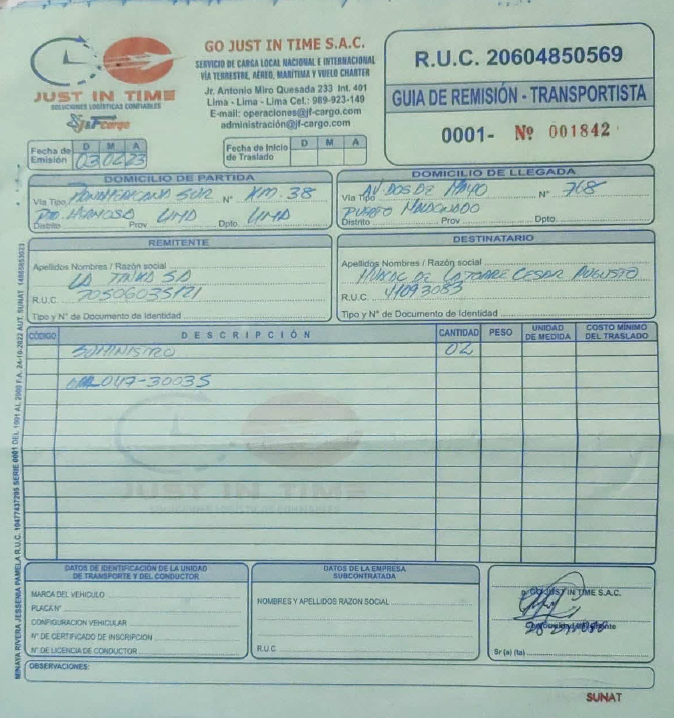 JUST IN TIME
SOLUCIONES LOGÍSTICAS CONFIABLES
J&F cargo
GO JUST IN TIME S.A.C.
SERVICIO DE CARGA LOCAL NACIONAL E INTERNACIONAL
VÍA TERRESTRE, AÉREO, MARÍTIMA Y VUELO CHARTER
Jr. Antonio Miro Quesada 233 Int. 401
Lima - Lima - Lima Cel.: 989-923-149
E-mail: operaciones@jf-cargo.com
administración@jf-cargo.com
R.U.C. 20604850569
GUIA DE REMISIÓN - TRANSPORTISTA
0001- Nº 001842
Fecha de Emisión D M A
03 02 23
Fecha de Inicio de Traslado D M A
DOMICILIO DE PARTIDA
Vía Tipo Panamericana Sur Nº KM. 38
Pto. Hermosa Lima Lima
Distrito Prov Dpto.
DOMICILIO DE LLEGADA
Vía Tipo Av. Dos de Mayo Nº 768
Puerto Maldonado
Distrito Prov Dpto.
REMITENTE
Apellidos Nombres / Razón social
SA
R.U.C.
Tipo y N° de Documento de Identidad
DESTINATARIO
Apellidos Nombres / Razón social
de la Torre Cesar Augusto
R.U.C. 41093083
Tipo y N° de Documento de Identidad
CÓDIGO DESCRIPCIÓN CANTIDAD PESO UNIDAD DE MEDIDA COSTO MÍNIMO DEL TRASLADO
Suministro 02
047-30035
JUST IN TIME
DATOS DE IDENTIFICACIÓN DE LA UNIDAD DE TRANSPORTE Y DEL CONDUCTOR
MARCA DEL VEHICULO
PLACA N°
CONFIGURACION VEHICULAR
N° DE CERTIFICADO DE INSCRIPCION
N° DE LICENCIA DE CONDUCTOR
DATOS DE LA EMPRESA SUBCONTRATADA
NOMBRES Y APELLIDOS RAZON SOCIAL
R.U.C.
p. GO JUST IN TIME S.A.C.
Conformidad del Cliente
Sr (a) (ta)
OBSERVACIONES:
SUNAT
MINAYA RIVERA JESSENIA PAMELA R.U.C. 10477437295 SERIE 0001 DEL 1991 AL 2000 F.A. 24-10-2022 AUT. SUNAT